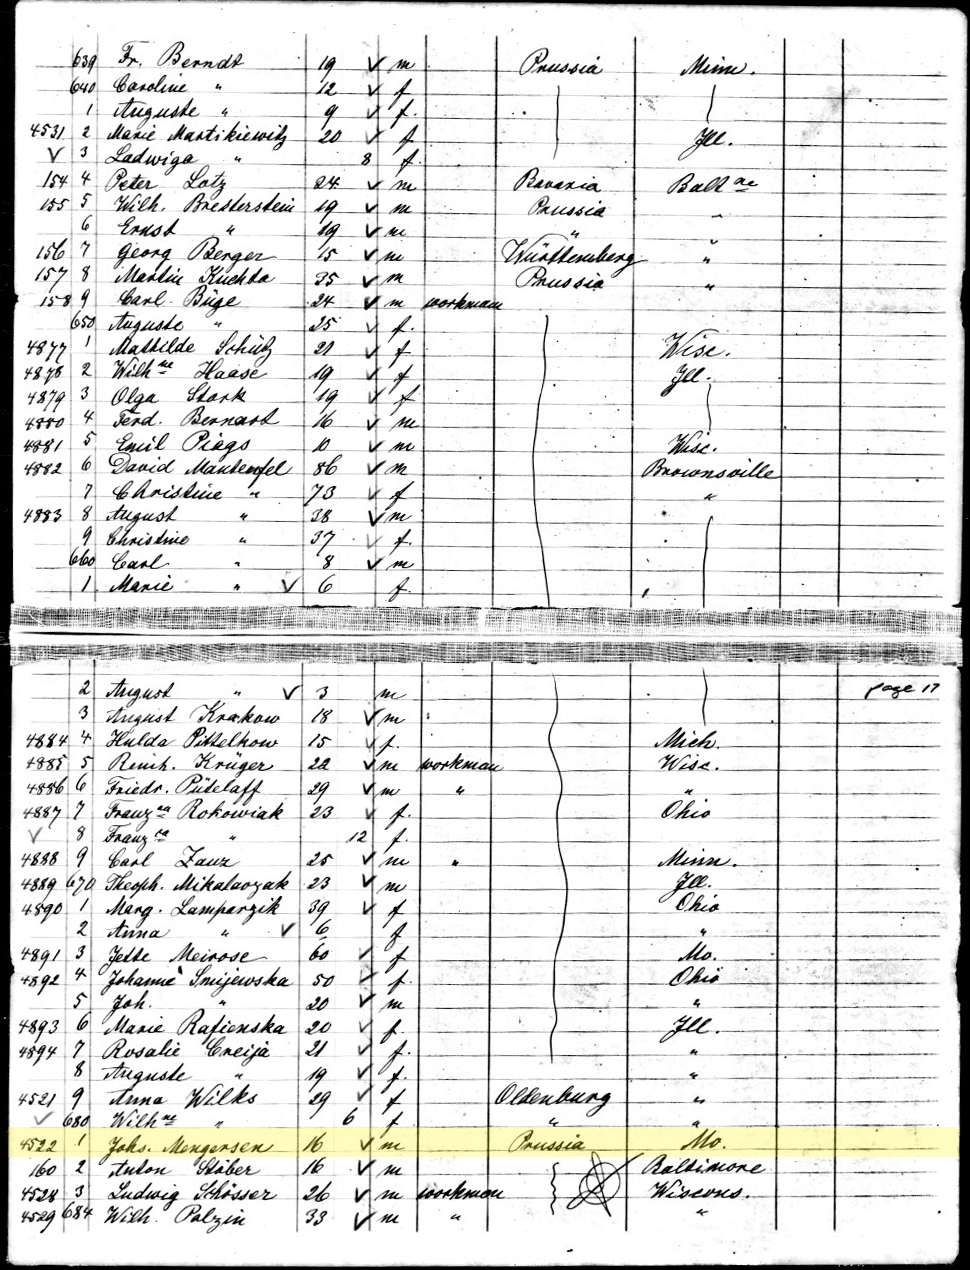 639 Fr. Berndt 19 m Prussia Minn.
640 Caroline " 12 f
1 Auguste " 9 f.
4531 2 Marie Martikiewitz 20 f Ill.
3 Ladwiga " 8 f.
154 4 Peter Lotz 24 m Bavaria Balt re
155 5 Wilh. Bresterstein 19 m Prussia "
6 Ernst " 19 m " "
156 7 Georg Berger 15 m Württemberg "
157 8 Martin Kuchta 35 m Prussia "
158 9 Carl Büge 24 m workman
650 Auguste " 25 f.
4877 1 Mathilde Schütz 21 f Wisc.
4878 2 Wilh ne Haase 19 f Ill.
4879 3 Olga Stark 19 f
4880 4 Ferd. Bernart 16 m
4881 5 Emil Piags 10 m Wisc.
4882 6 David Manteufel 86 m Brownsville
7 Christine " 73 f "
4883 8 August " 38 m
9 Christine " 37 f.
660 Carl " 8 m
1 Marie " 6 f.
page 17
2 August " 3 m
3 August Krakow 18 m
4884 4 Hulda Pittelkow 15 f. Mich.
4885 5 Reinh. Krüger 22 m workman Wisc.
4886 6 Friedr. Pütelaff 29 m " "
4887 7 Franz ca Rokowiak 23 f. Ohio
8 Franz ca " 12 f.
4888 9 Carl Zanz 25 m " Minn.
4889 670 Theoph. Mikalavzak 23 m Ill.
4890 1 Marg. Lamparzik 39 f Ohio
2 Anna " 6 f "
4891 3 Jette Meirose 60 f Mo.
4892 4 Johanne Smijewska 50 f. Ohio
5 Joh. " 20 m "
4893 6 Marie Rafienska 20 f. Ill.
4894 7 Rosalie Creija 21 f. "
8 Auguste " 19 f. "
4521 9 Anna Wilks 29 f Oldenburg "
680 Wilh ne " 6 f " "
4522 1 Johs. Mengersen 16 m Prussia Mo.
160 2 Anton Stöber 16 m Baltimore
4528 3 Ludwig Schösser 26 m workman Wiscons.
4529 684 Wilh. Polzin 33 m " "